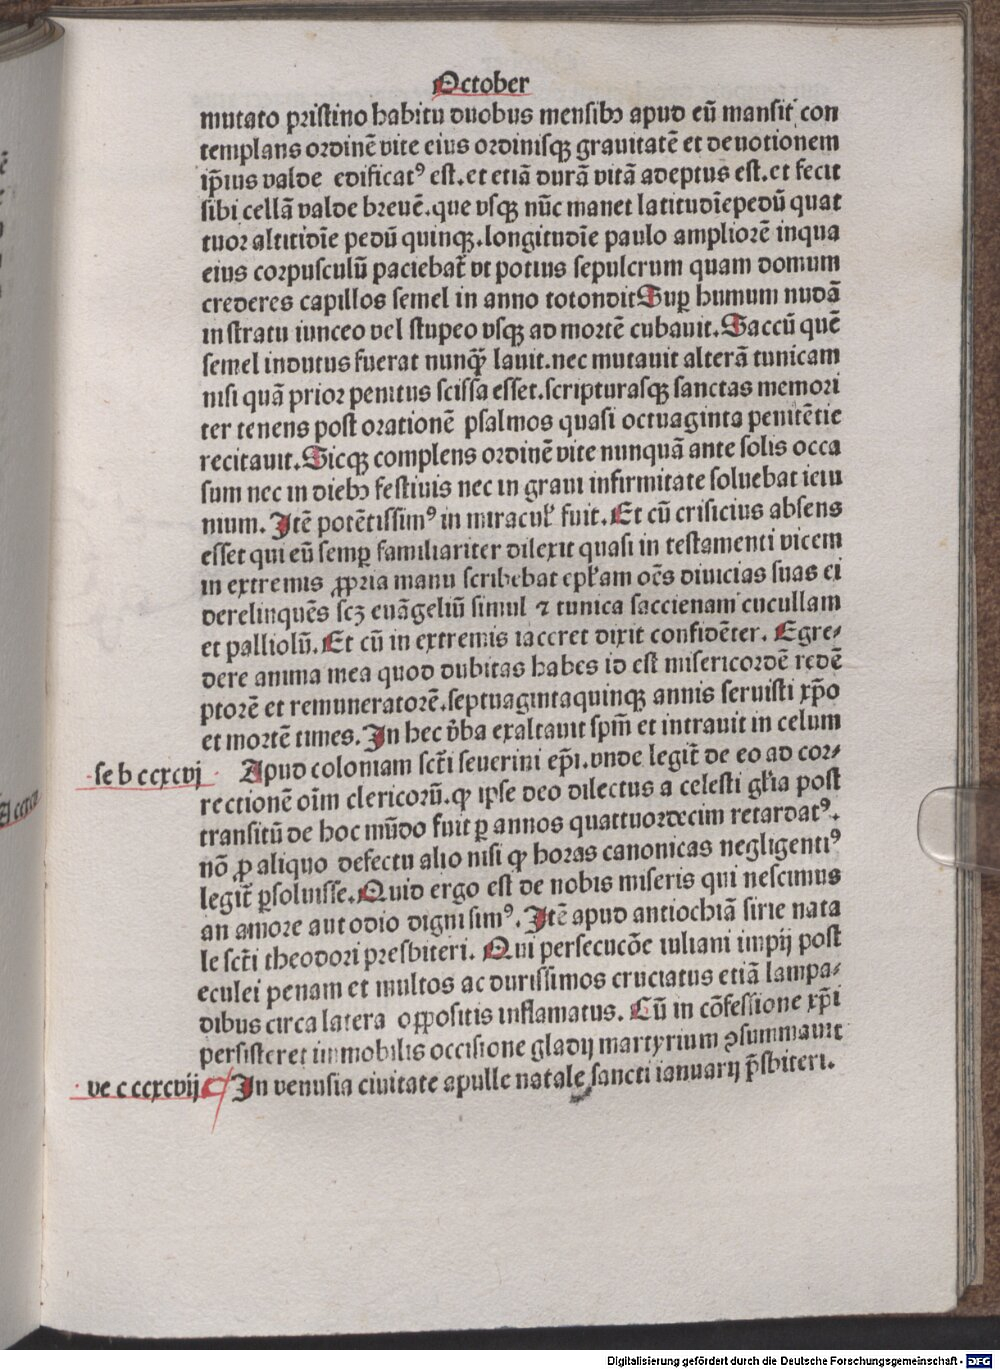 October
mutato pristino habitu duobus mensibꝫ apud eū mansit con
templans ordinē vite eius ordinisqꝫ grauitatē et deuotionem
ip̄ius valde edificatꝰ est. et etiā durā vitā adeptus est. et fecit
sibi cellā valde breuē. que vsqꝫ nūc manet latitudīe pedū quat
tuor altitidīe pedū quinqꝫ. longitudīe paulo ampliorē inqua
eius corpusculū paciebat᷑ vt potius sepulcrum quam domum
crederes capillos semel in anno totondit Sup̱ humum nudā
in stratu iunceo vel stupeo vsqꝫ ad mortē cubauit. Saccū quē
semel indutus fuerat nunqꝙ̄ lauit. nec mutauit alterā tunicam
nisi quā prior penitus scissa esset. scripturasqꝫ sanctas memori
ter tenens post orationē psalmos quasi octuaginta penitētie
recitauit. Sicqꝫ complens ordinē vite nunquā ante solis occa
sum nec in diebꝫ festiuis nec in graui infirmitate soluebat ieiu
nium. Itē potētissimꝰ in miracul᷑ fuit. Et cū crisicius absens
esset qui eū semꝑ familiariter dilexit quasi in testamenti vicem
in extremis ꝓpria manu scribebat epl̄am oēs diuicias suas ei
derelinquēs scꝫ euāgeliū simul ⁊ tunica saccienam cucullam
et palliolū. Et cū in extremis iaceret dixit confidēter. Egre⸗
dere anima mea quod dubitas habes id est misericordē redē
ptorē et remuneratorē. septuagintaquinqꝫ annis seruisti xp̄o
et mortē times. In hec v̄ba exaltauit spm̄ et intrauit in celum
se b ccxcvj Apud coloniam sct̄i seuerini ep̄i. vnde legit᷑ de eo ad cor⸗
rectionē oīm clericorū. ꝙ ipse deo dilectus a celesti gl̄ia post
transitū de hoc mūdo fuit ꝑ annos quattuordecim retardatꝰ.
nō ꝓ aliquo defectu alio nisi ꝙ horas canonicas negligentiꝰ
legit᷑ ꝑsoluisse. Quid ergo est de nobis miseris qui nescimus
an amore aut odio digni simꝰ. Itē apud antiochiā sirie nata
le sct̄i theodori presbiteri. Qui persecucōe iuliani impij post
eculei penam et multos ac durissimos cruciatus etiā lampa⸗
dibus circa latera oppositis inflamatus. Cū in cōfessione xp̄i
persisteret immobilis occisione gladij martyrium ꝯsummauit
ve c ccxcvij In venusia ciuitate apulle natale sancti ianuarij p̄sbiteri.
Digitalisierung gefördert durch die Deutsche Forschungsgemeinschaft - DFG